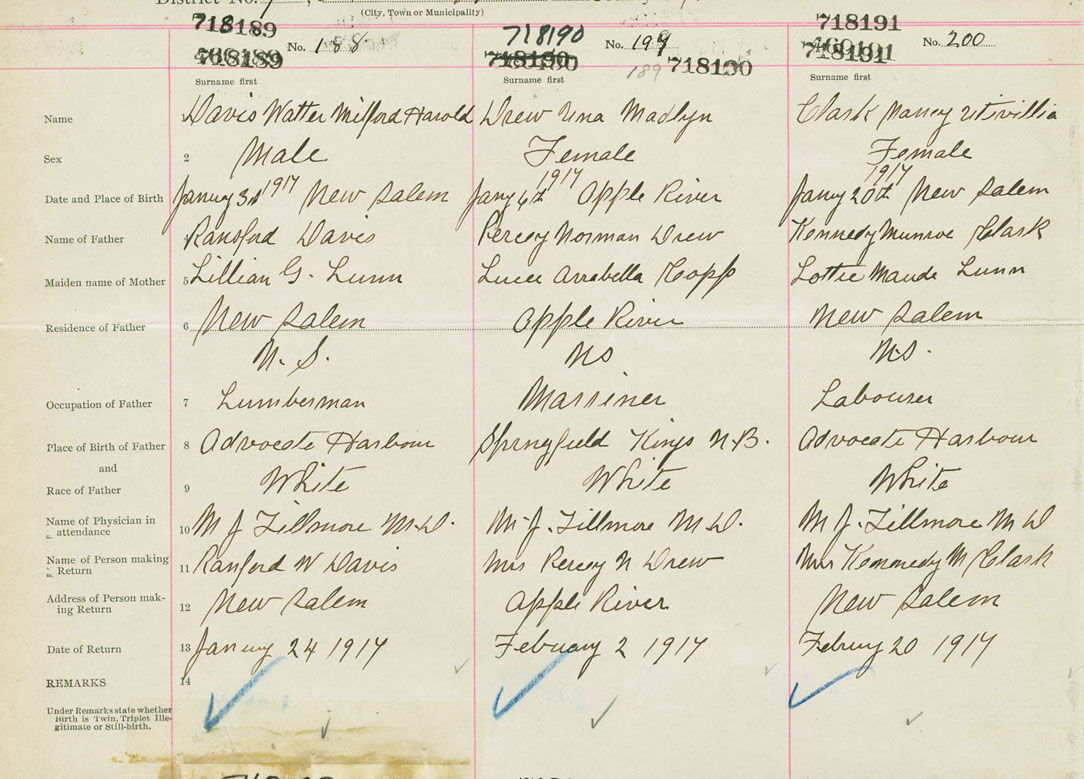 (City, Town or Municipality)
718189 718190 718191
No. 188 No. 199 No. 200
718189 189 718190 718191
Surname first Surname first Surname first
Name Davis Walter Milford Harold Drew Una Madlyn Clark Nancy
Sex 2 Male Female Female
1917 1917 1917
Date and Place of Birth Janry 3d New Salem Janry 6th Apple River Janry 20th New Salem
Name of Father Ransford Davis Percey Norman Drew Kennedy Munroe Clark
Maiden name of Mother 5 Lillian G. Lunn Luce Arrabella Copp Lottie Maude Lunn
Residence of Father 6 New Salem Apple River New Salem
N. S. NS N.S.
Occupation of Father 7 Lumberman Marriner Labourer
Place of Birth of Father 8 Advocate Harbour Springfield Kings N.B. Advocate Harbour
and
Race of Father 9 White White White
Name of Physician in
attendance 10 M J. Fillmore M.D. M. J. Fillmore M.D. M J. Fillmore M D
Name of Person making
Return 11 Ranford W Davis Mrs Percey N Drew Mrs Kennedy M Clark
Address of Person mak-
ing Return 12 New Salem Apple River New Salem
Date of Return 13 Janury 24 1917 February 2 1917 Februry 20 1917
REMARKS 14
Under Remarks state whether
Birth is Twin, Triplet Ille-
gitimate or Still-birth.